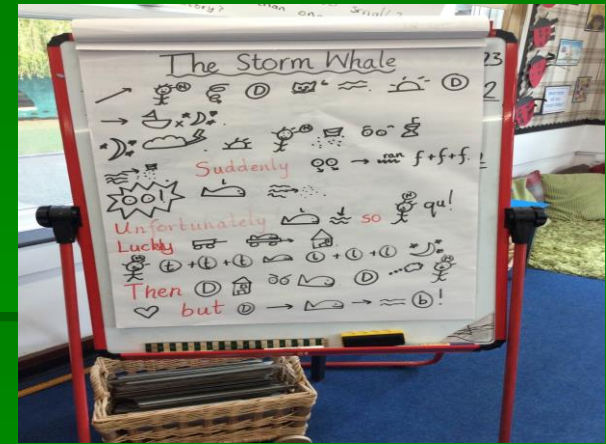 The Storm Whale
D D
Suddenly ran f+f+f.
OO!
Unfortunately so qu!
Lucky
t + t + t t + t + t
Then D D
but D b!